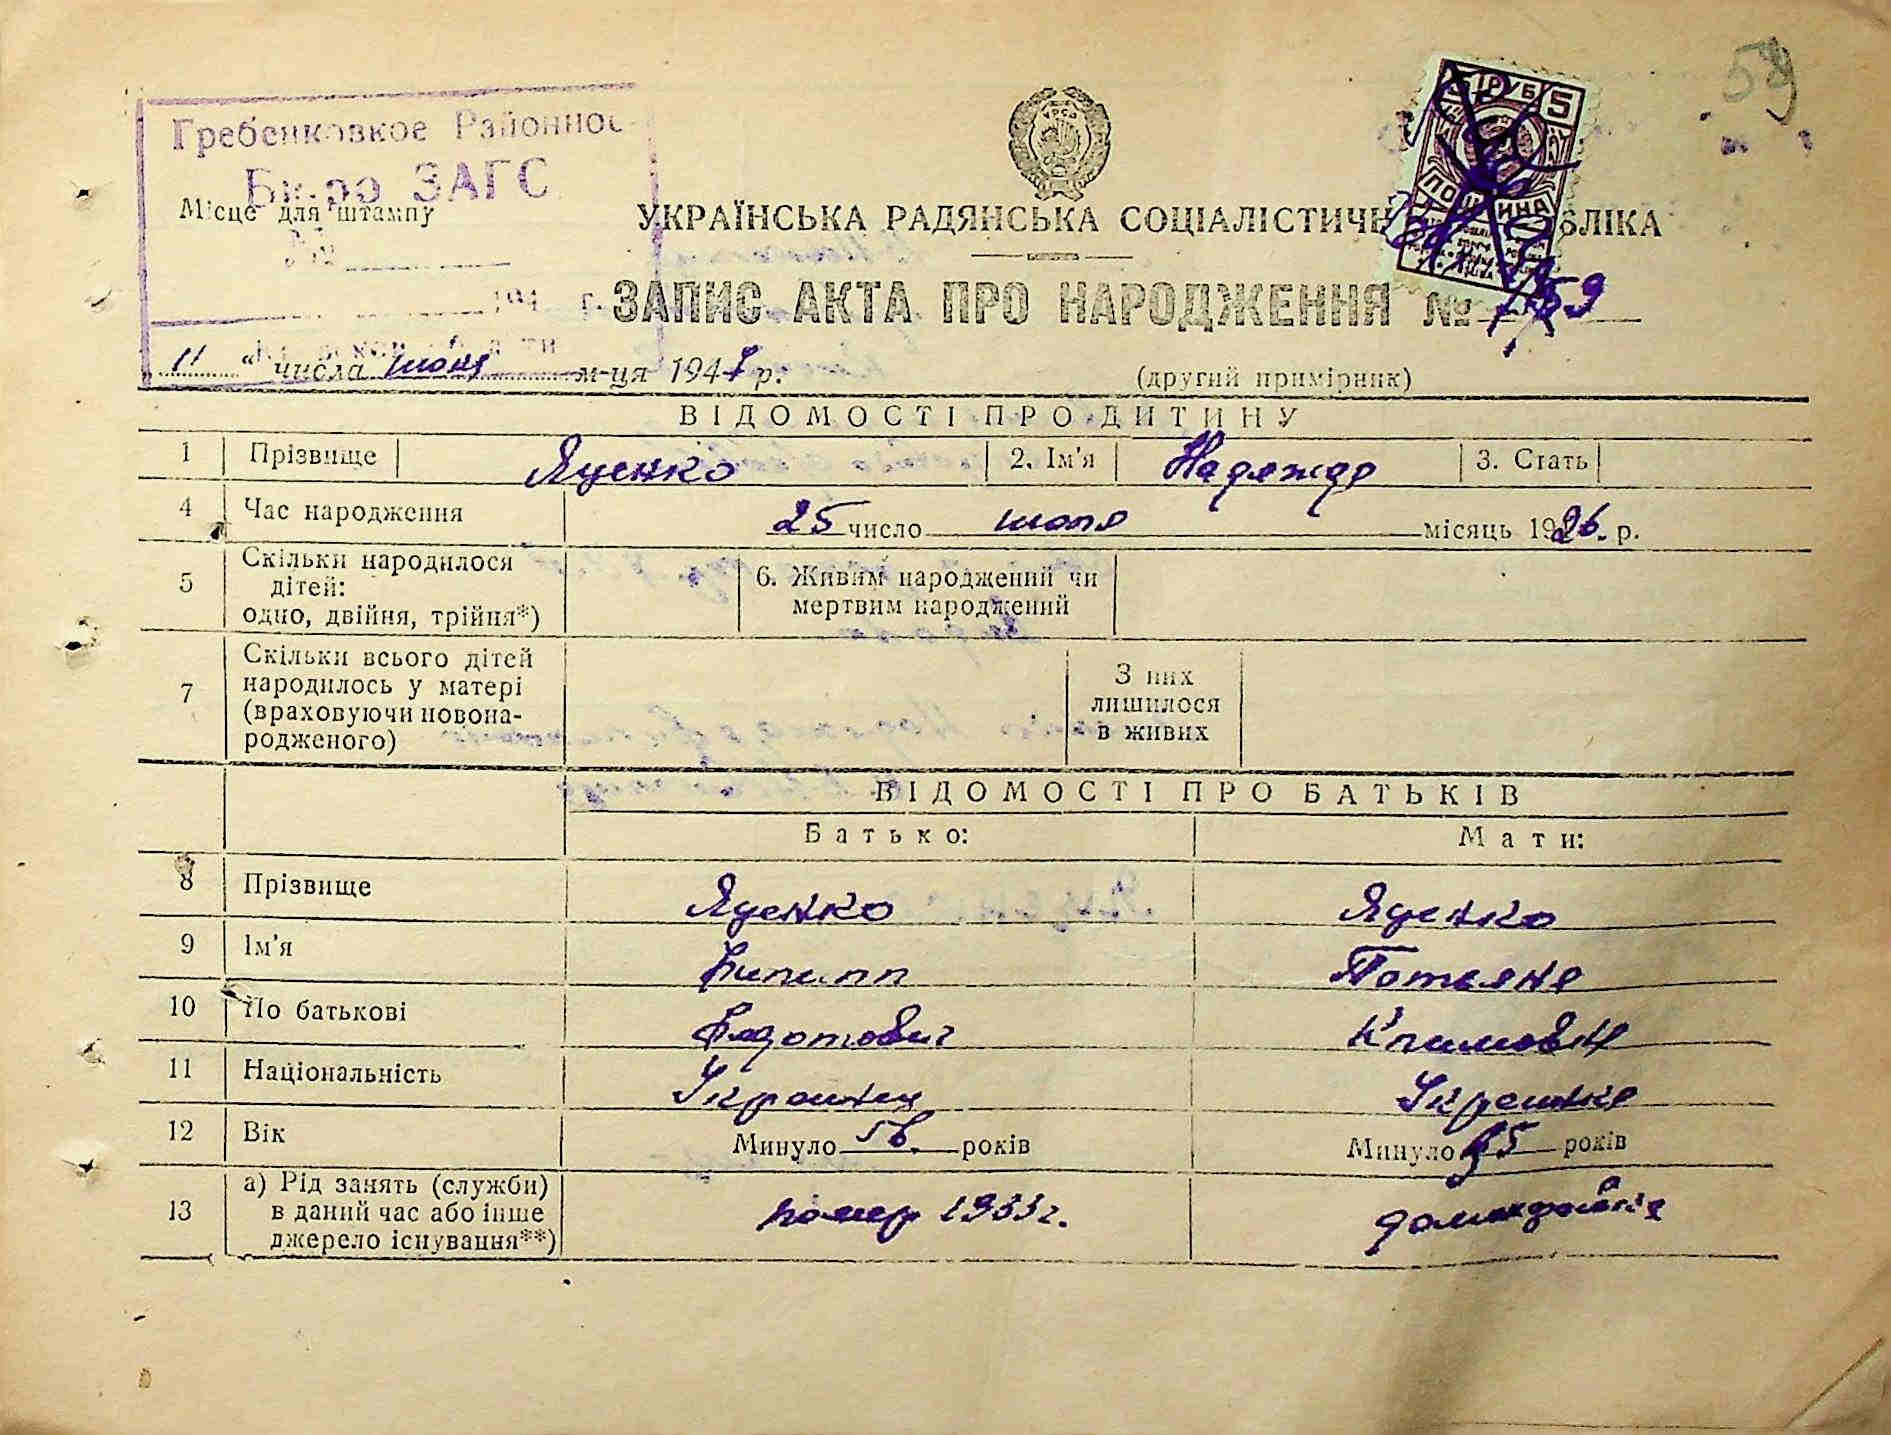 59
Гребенковкое Районное
Бюро ЗАГС
Місце для штампу
№
194 г.
5 РУБ 5
УКРАЇНСЬКА РАДЯНСЬКА СОЦІАЛІСТИЧН БЛІКА
ЗАПИС АКТА ПРО НАРОДЖЕННЯ № 59
11 " числа июня м-ця 194 р.
(другий примірник)
ВІДОМОСТІ ПРО ДИТИНУ
1 Прізвище Яценко 2. Ім'я Надежда 3. Стать
4 Час народження 25 число июля місяць 1926. р.
5 Скільки народилося
дітей:
одно, двійня, трійня*)
6. Живим народжений чи
мертвим народжений
7 Скільки всього дітей
народилось у матері
(враховуючи новона-
родженого)
З них
лишилося
в живих
ВІДОМОСТІ ПРО БАТЬКІВ
Батько: Мати:
8 Прізвище Яценко Яценко
9 Ім'я Филипп Татьяна
10 По батькові Федотович Климовна
11 Національність Украинец Украинка
12 Вік Минуло 56. років Минуло 35 років
13 а) Рід занять (служби)
в даний час або інше
джерело існування**)
помер 1933 г. домохозяйка